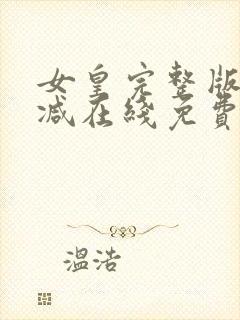 女皇完整版
减在线免費
温浩